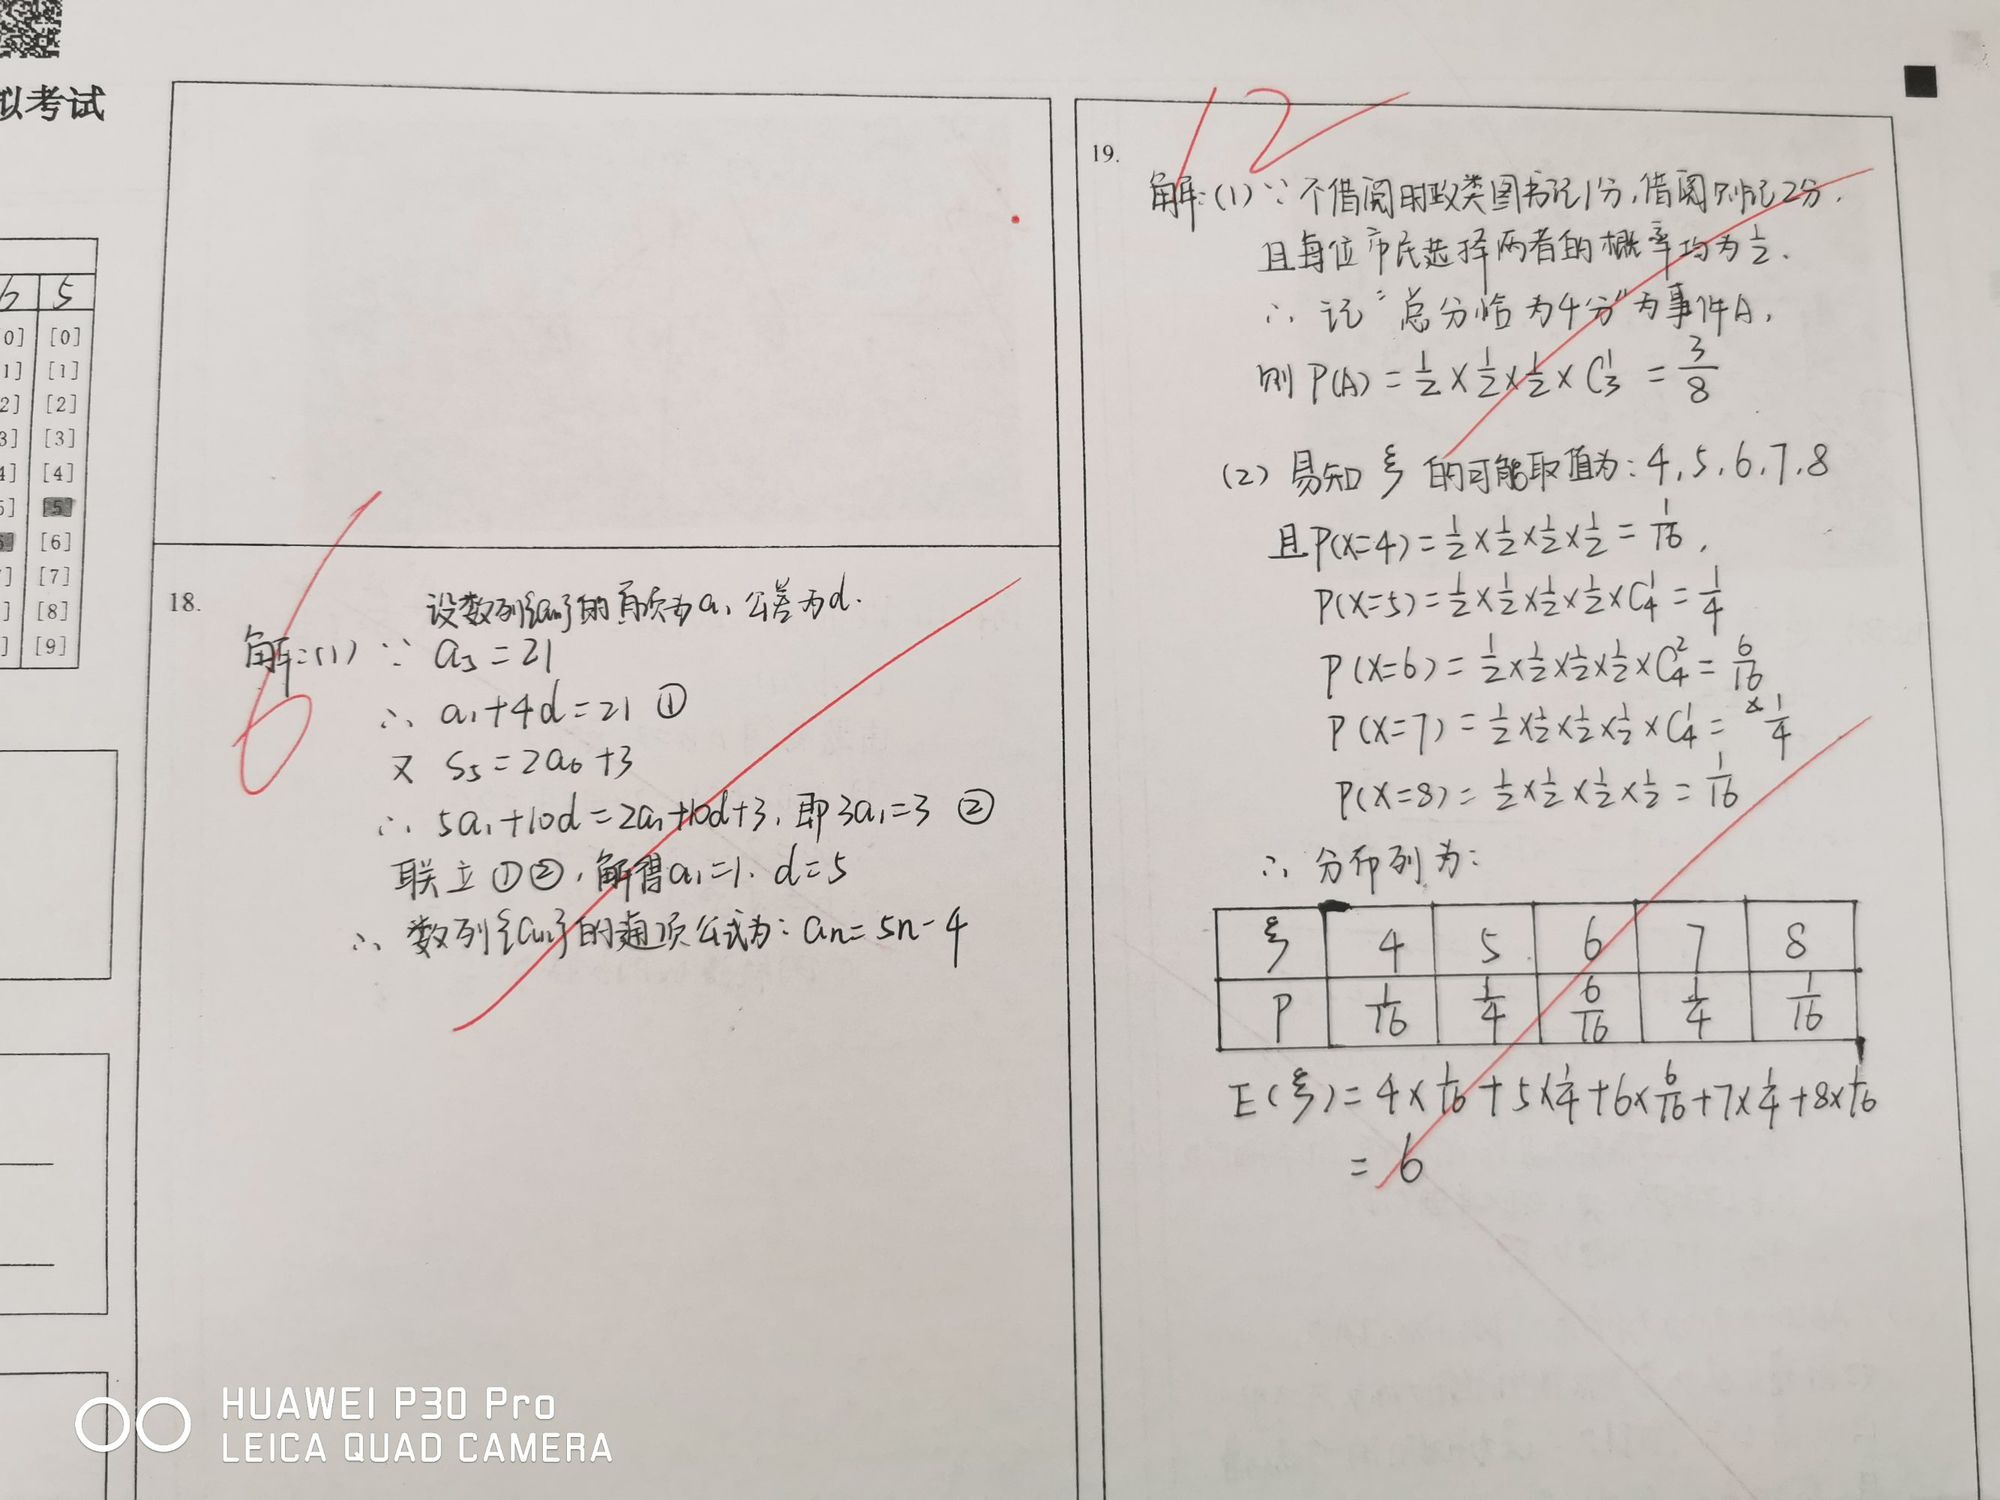 拟考试
6 5
[0] [0]
[1]
[2]
[3]
[4]
[5]
[6]
[7]
[8]
[9]
6
18.
设数列{an}的首项为a₁ 公差为d.
解:(1) ∵ a₅=21
∴ a₁+4d=21 ①
又 S₅=2a₆+3
∴ 5a₁+10d=2a₁+10d+3, 即3a₁=3 ②
联立①②, 解得a₁=1. d=5
∴ 数列{an}的通项公式为: an=5n-4
12
19.
解:(1) ∵ 不借阅时政类图书记1分,借阅则记2分,
且每位市民选择两者的概率均为1/2.
∴ 记“总分恰为4分”为事件A,
则 P(A)=1/2×1/2×1/2×C₃¹=3/8
(2) 易知 ξ 的可能取值为: 4,5,6,7,8
且P(X=4)=1/2×1/2×1/2×1/2=1/16,
P(X=5)=1/2×1/2×1/2×1/2×C₄¹=1/4
P(X=6)=1/2×1/2×1/2×1/2×C₄²=6/16
P(X=7)=1/2×1/2×1/2×1/2×C₄¹=1/4
P(X=8)=1/2×1/2×1/2×1/2=1/16
∴ 分布列为:
ξ 4 5 6 7 8
P 1/16 1/4 6/16 1/4 1/16
E(ξ)=4×1/16+5×1/4+6×6/16+7×1/4+8×1/16
=6
HUAWEI P30 Pro
LEICA QUAD CAMERA